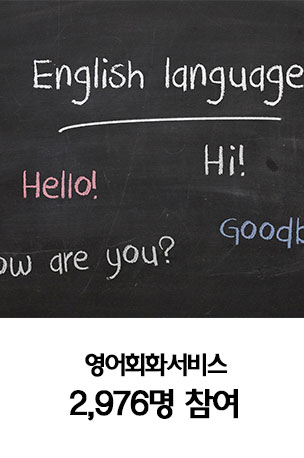 English language
Hi!
Hello!
Goodb
ow are you?
영어회화서비스
2,976명 참여